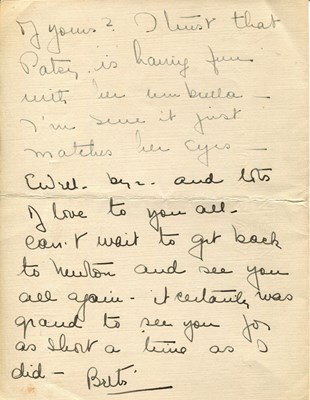 of yours? I trust that
Patsy is having fun
with her umbrella -
I'm sure it just
matches her eyes -
Well - bye - and lots
of love to you all -
can't wait to get back
to Newton and see you
all again - it certainly was
grand to see you for
as short a time as I
did -